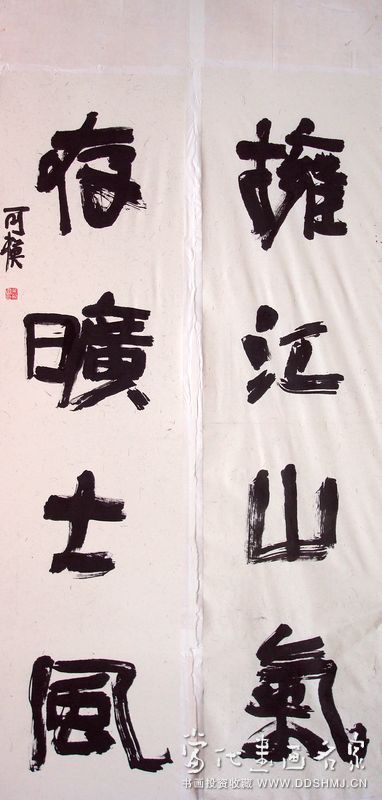 擁江山氣
存曠士風
可模
當代書畫名家
书画投资收藏 WWW.DDSHMJ.CN